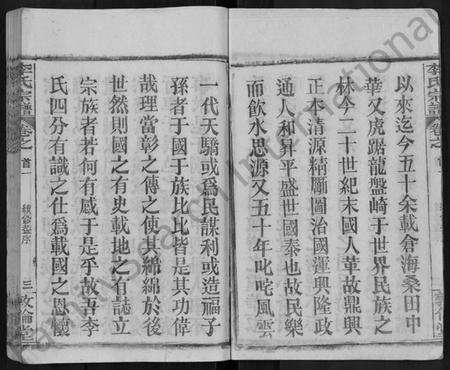 以來迄今五十余載倉海桑田中
華又虎踞龍盤崎于世界民族之
林今二十世紀末國人革故鼎興
正本清源精勵圖治國運興隆政
通人和昇平盛世國泰也故民樂
而飲水思源又五十年叱咤風雲
一代天驕或爲民謀利或造福子
孫者于國于族比比皆是其功偉
哉理當彰之傳之使其綿綿於後
世然則國之有史載地之有誌立
宗族者若何有感于是乎故吾李
氏四分有識之仕爲載國之恩懷
李氏宗譜
卷之首一
續修譜序
三
敦倫堂
李氏宗譜
卷之
FamilySearch International